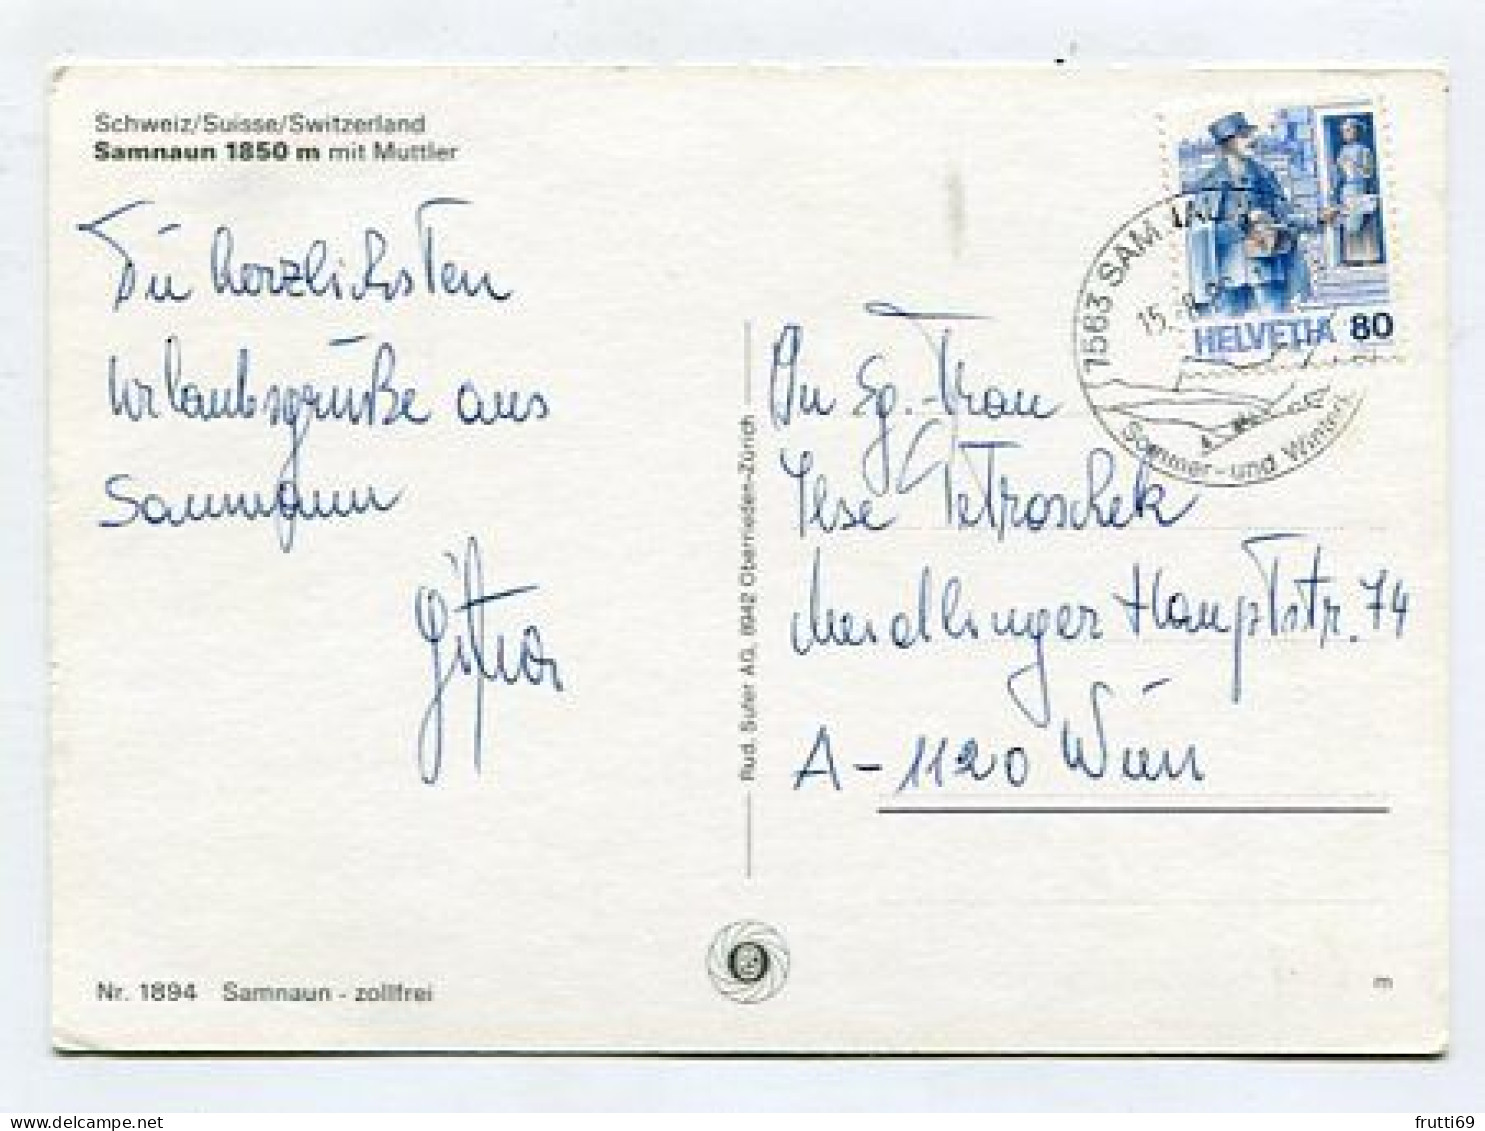 Schweiz/Suisse/Switzerland
Samnaun 1850 m mit Muttler
Die herzlichsten
Urlaubsgrüße aus
Samnaun
HELVETIA 80
7563 SAMNAUN
15. -8.
Sommer- und Winter
An Sg. Frau
Ilse Petroschek
Meidlinger Hauptstr. 74
A-1120 Wien
Rud. Suter AG, 8942 Oberrieden-Zürich
Nr. 1894 Samnaun - zollfrei
m
frutti69